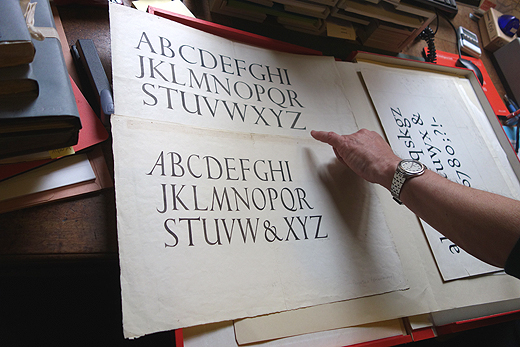 ABCDEFGHI
JKLMNOPQR
STUVWXYZ
ABCDEFGHI
JKLMNOPQR
STUVW&XYZ